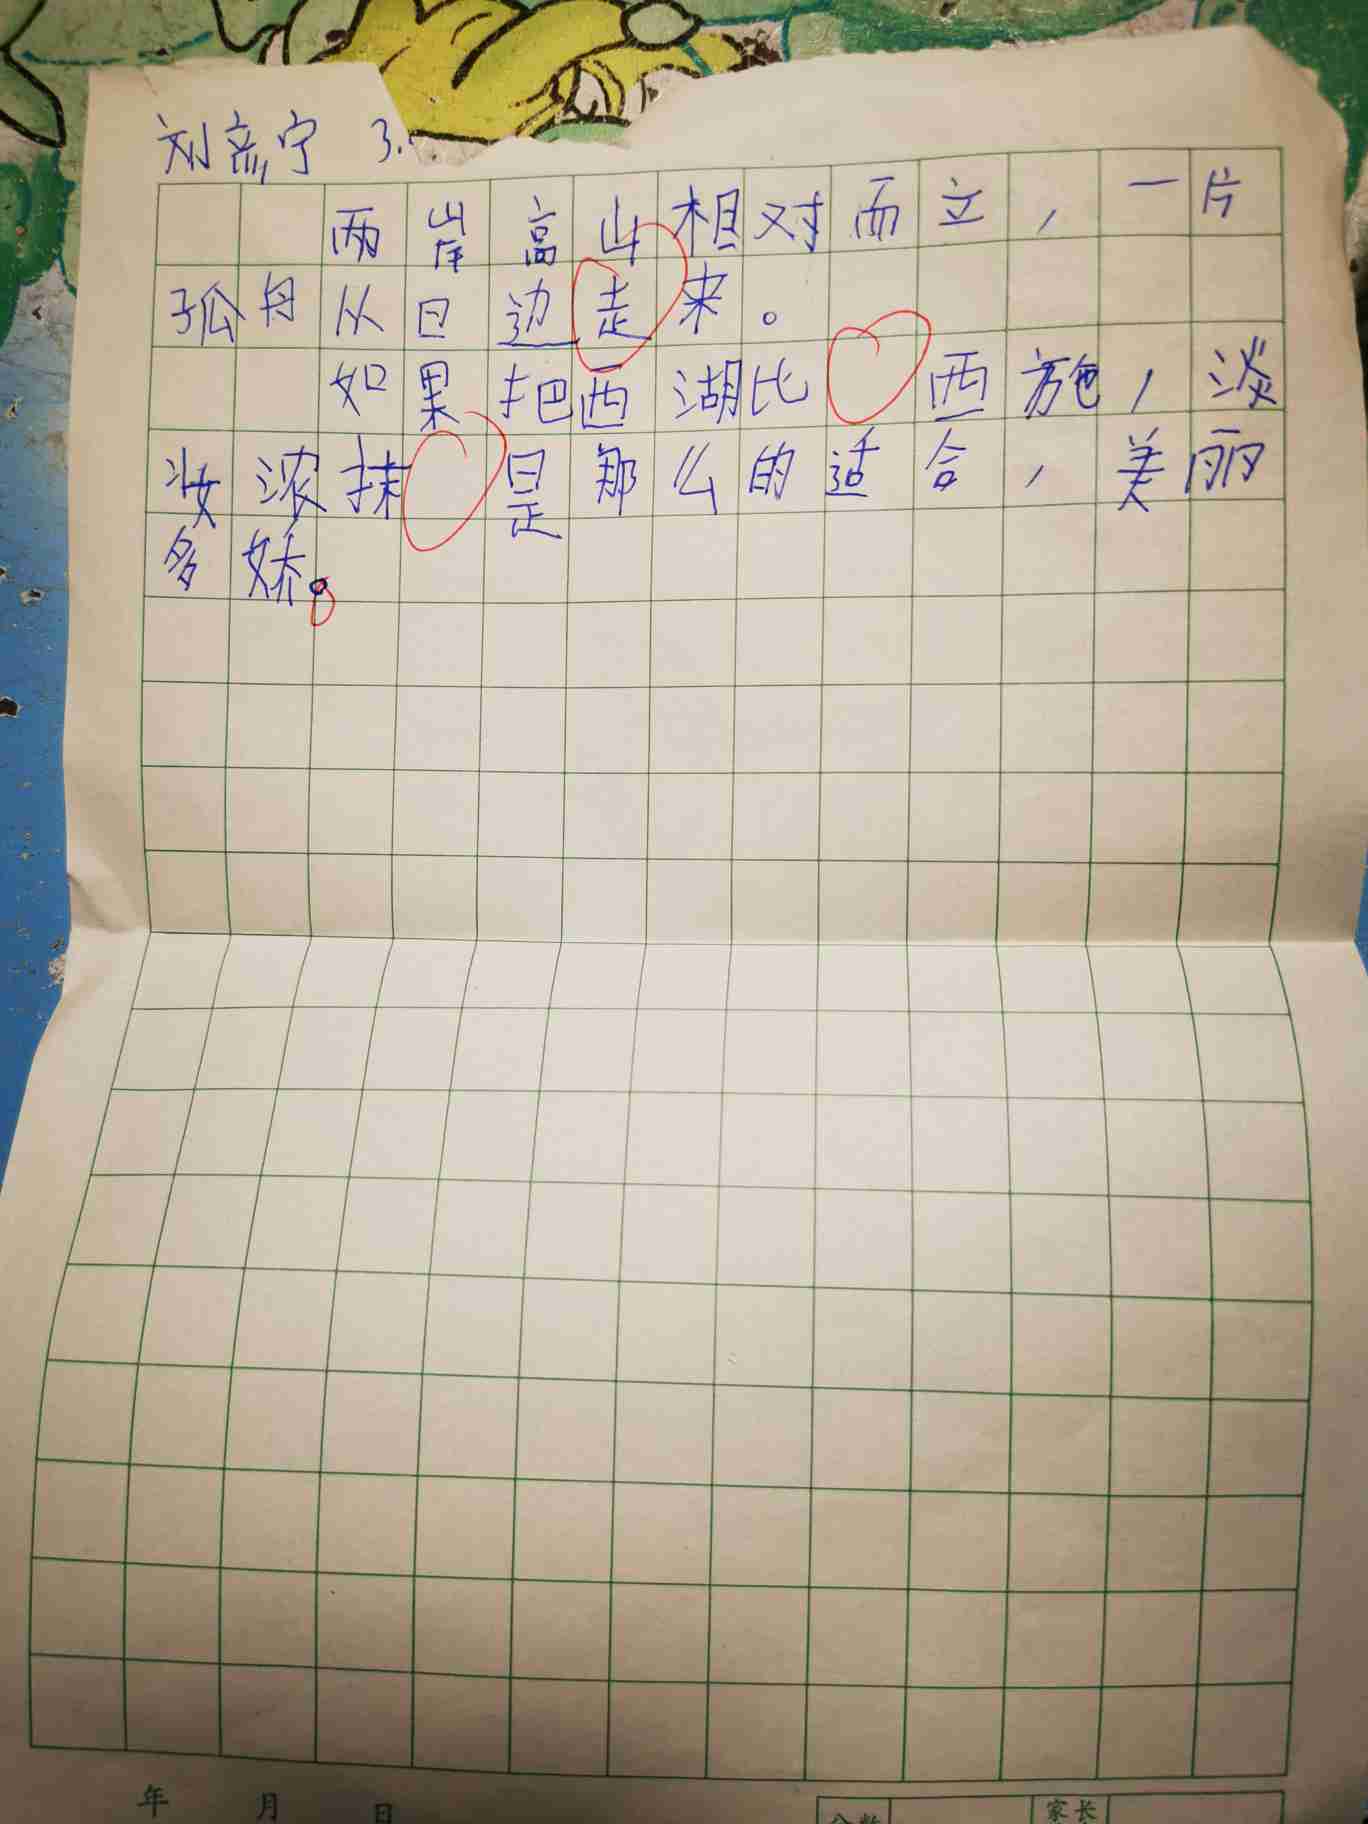 刘彦宁 3.
两岸高山相对而立，一片
孤舟从日边走来。
如果把西湖比 西施，淡
妆浓抹 是那么的适合，美丽
多娇。
年 月 日
家长